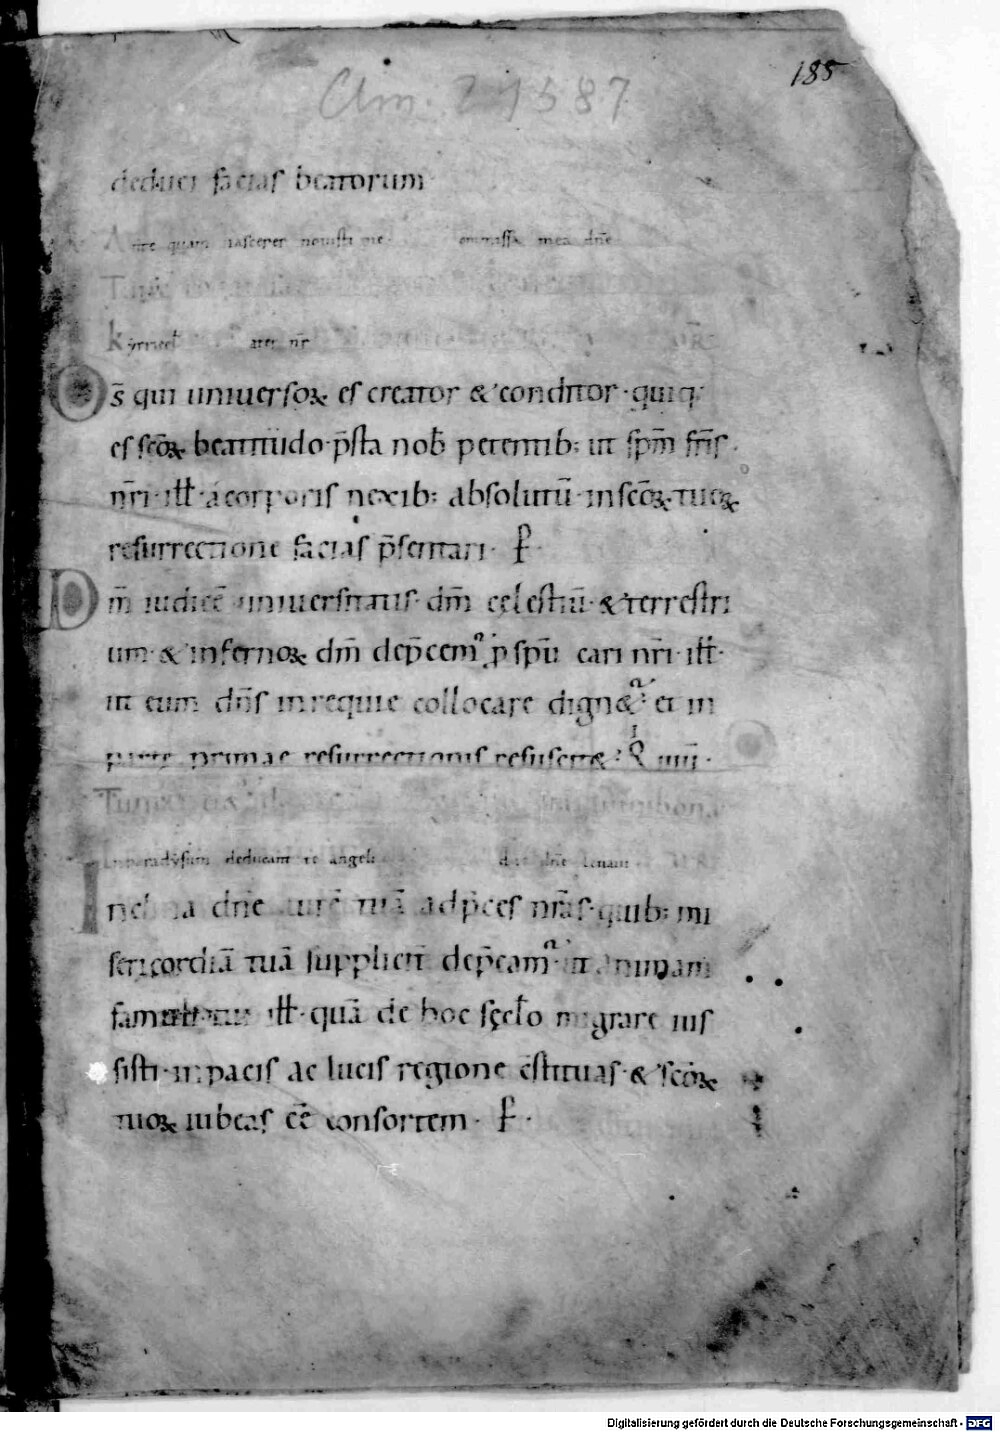 185
Clm. 21587
deduci facias beatorum
quam nasceret novisti me commissa mea dn̄e
Kyrieel Pater nr̄
Ds̄ qui uniuersoꝝ es creator & conditor · quiq;
es sc̄oꝝ beatitudo · p̄sta nob̄ petentib; ut sp̄m fr̄is
nr̄i · ill̄ · a corporis nexib; absolutū · in sc̄oꝝ tuoꝝ
resurrectione facias p̄sentari · P̄ ·
Dm̄ iudicē uniuersitatis · dm̄ celestiū · & terrestri
um · & infernoꝝ dm̄ dep̄cem̄ p̄ spū cari nr̄i · ill̄ ·
ut eum dn̄s in requie collocare dign& · et in
parte primae resurrectionis resuscit& · R̄ IIII ·
In paradysum deducant te angeli dn̄e
Inclina dn̄e aurē tuā ad p̄ces nr̄as · quib; mi
sericordiā tuā supplicit̄ dep̄cam̄ · ut animam
ill̄ · quā de hoc sęcl̄o migrare ius
sisti · in pacis ac lucis regione c̄stituas · & sc̄oꝝ
tuoꝝ iubeas eē consortem · P̄ ·
Digitalisierung gefördert durch die Deutsche Forschungsgemeinschaft - DFG